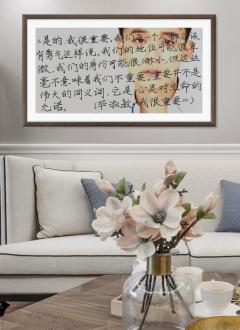 “是的,我很重要。我们每一个人都应该
有勇气这样说。我们的地位可能很卑
微,我们的身份可能很渺小,但这丝
毫不意味着我们不重要。重要并不是
伟大的同义词,它是心灵对生命的
允诺。 (毕淑敏《我很重要》)